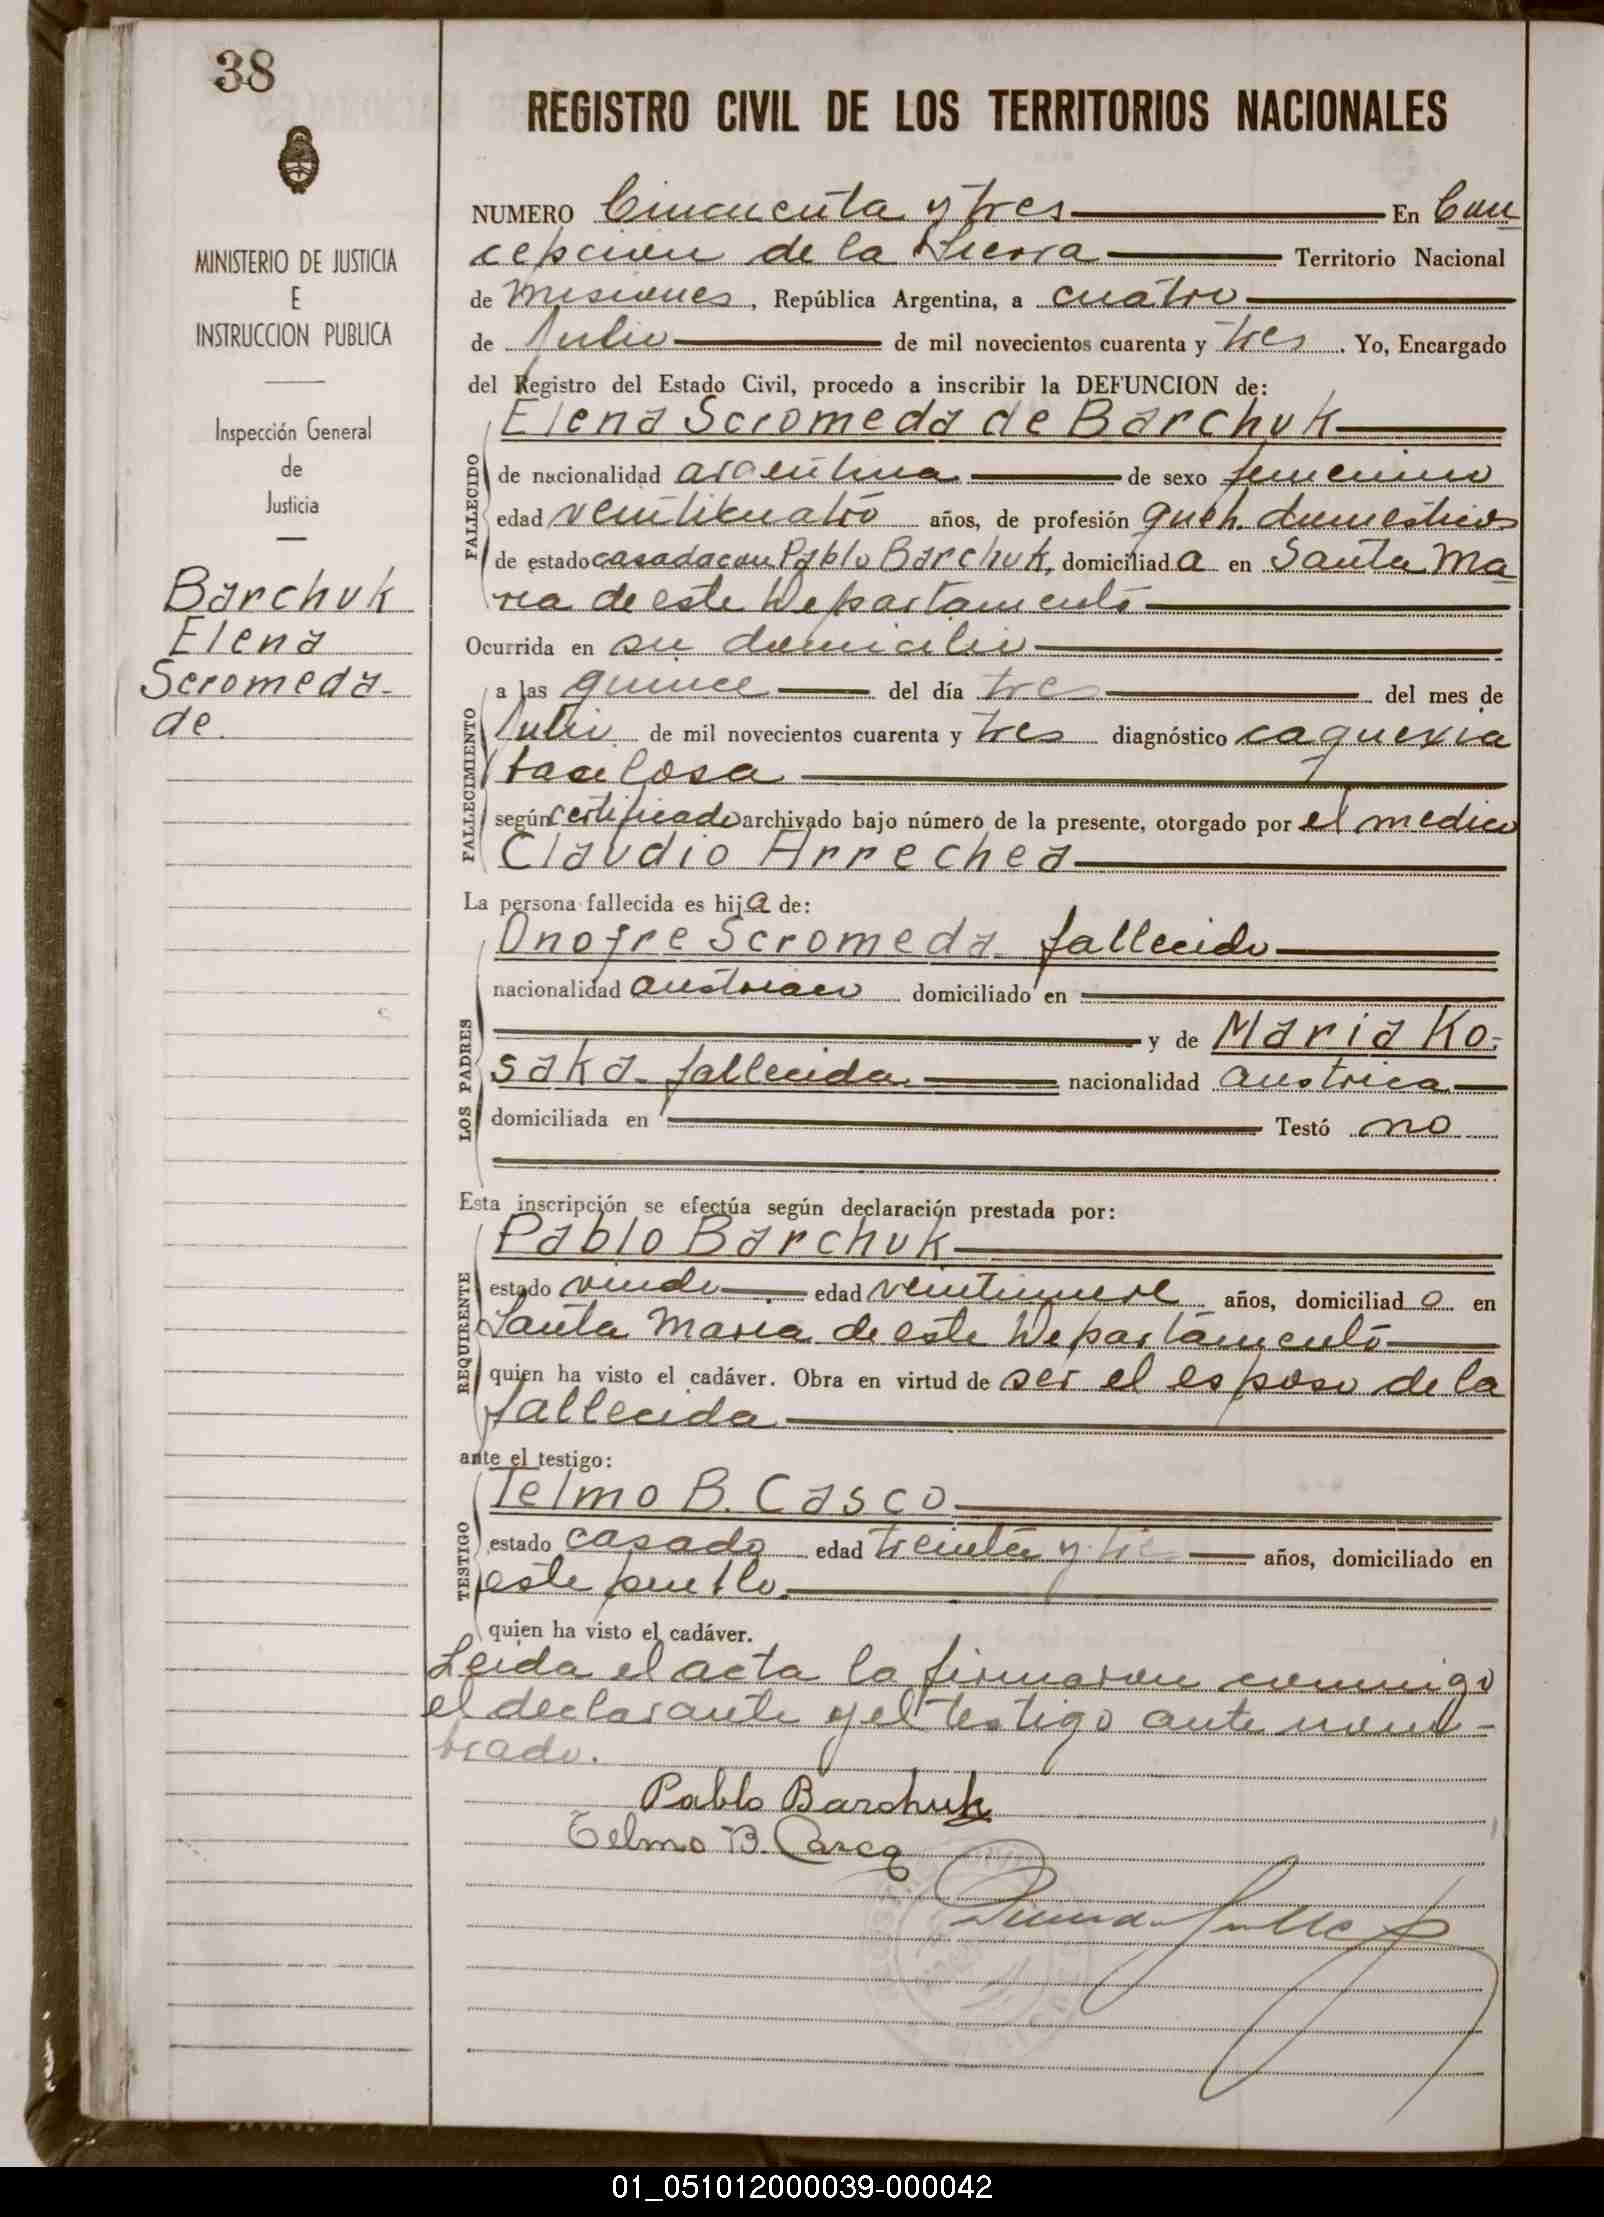 38
REGISTRO CIVIL DE LOS TERRITORIOS NACIONALES
MINISTERIO DE JUSTICIA
E
INSTRUCCION PUBLICA
Inspección General
de
Justicia
Barchuk
Elena
Scromeda
de
NUMERO Cincuenta y tres En Con
cepcion de la Sierra Territorio Nacional
de Misiones, República Argentina, a cuatro
de Julio de mil novecientos cuarenta y tres. Yo, Encargado
del Registro del Estado Civil, procedo a inscribir la DEFUNCION de:
FALLECIDO
Elena Scromeda de Barchuk
de nacionalidad argentina de sexo femenino
edad veinticuatro años, de profesión queh. domesticos
de estado casada con Pablo Barchuk, domiciliada en Santa Ma
ria de este Departamento
Ocurrida en su domicilio
FALLECIMIENTO
a las quince del día tres del mes de
Julio de mil novecientos cuarenta y tres diagnóstico caquexia
bacilosa
según certificado archivado bajo número de la presente, otorgado por el medico
Claudio Arrechea
La persona fallecida es hija de:
LOS PADRES
Onofre Scromeda fallecido
nacionalidad austriaco domiciliado en
y de Maria Ko-
saka fallecida nacionalidad austrica
domiciliada en Testó no
Esta inscripción se efectúa según declaración prestada por:
REQUIRENTE
Pablo Barchuk
estado viudo edad veintinueve años, domiciliado en
Santa Maria de este Departamento
quien ha visto el cadáver. Obra en virtud de ser el esposo de la
fallecida
ante el testigo:
TESTIGO
Telmo B. Casco
estado casado edad treinta y tres años, domiciliado en
este pueblo
quien ha visto el cadáver.
Leida el acta la firmaron conmigo
el declarante y el testigo ante nom-
brado.
Pablo Barchuk
Telmo B. Casco
01_051012000039-000042